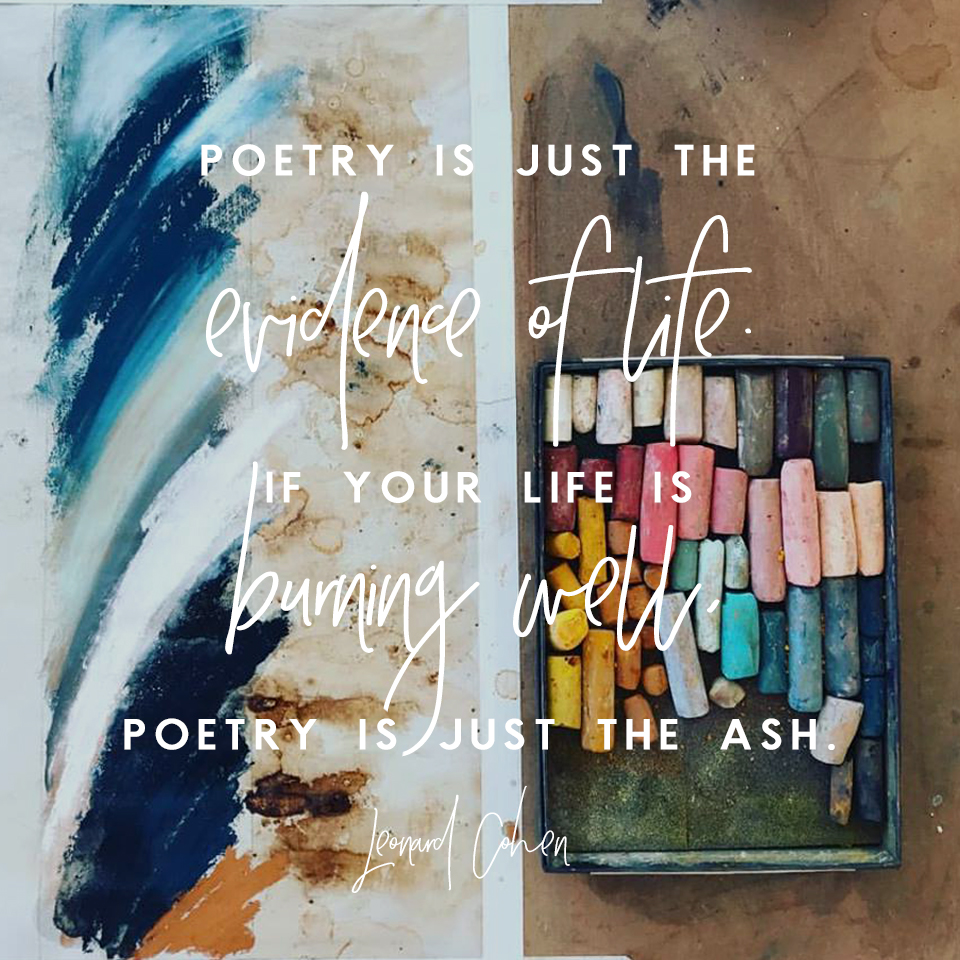 POETRY IS JUST THE
evidence of life.
IF YOUR LIFE IS
burning well,
POETRY IS JUST THE ASH.
Leonard Cohen